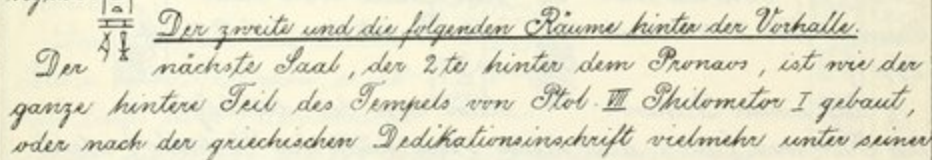 Der zweite und die folgenden Räume hinter der Vorhalle.
Der nächste Saal, der 2te hinter dem Pronaos, ist wie der
ganze hintere Teil des Tempels von Ptol. VII Philometor I gebaut,
oder nach der griechischen Dedikationsinschrift vielmehr unter seiner